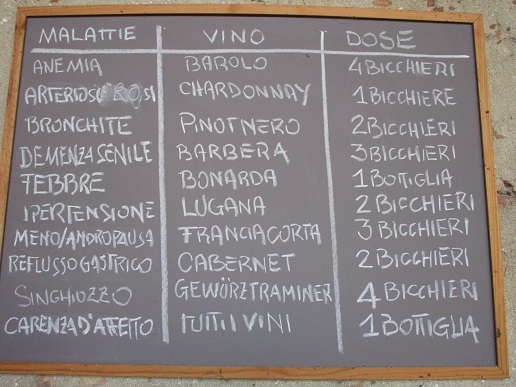 MALATTIE VINO DOSE
ANEMIA BAROLO 4 BICCHIERI
CHARDONNAY 1 BICCHIERE
BRONCHITE PINOT NERO 2 BICCHIERI
DEMENZA SENILE BARBERA 3 BICCHIERI
FEBBRE BONARDA 1 BOTTIGLIA
IPERTENSIONE LUGANA 2 BICCHIERI
MENO/ANDROPAUSA FRANCIACORTA 3 BICCHIERI
REFLUSSO GASTRICO CABERNET 2 BICCHIERI
SINGHIOZZO GEWÜRZTRAMINER 4 BICCHIERI
CARENZA D'AFFETTO TUTTI I VINI 1 BOTTIGLIA